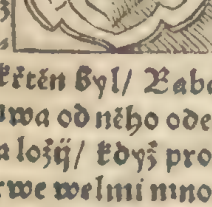 křtěn Byl/ Baba
wa od něho ode
a ložij/ když pro
rwe welmi mno